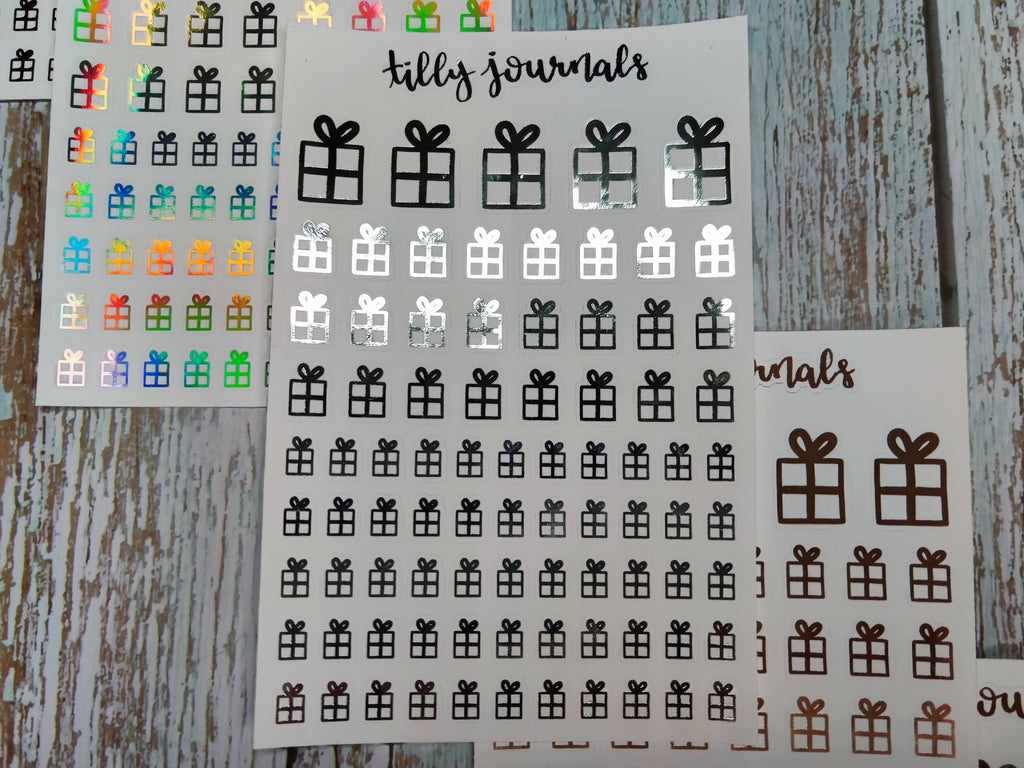 tilly journals
rnals
ou